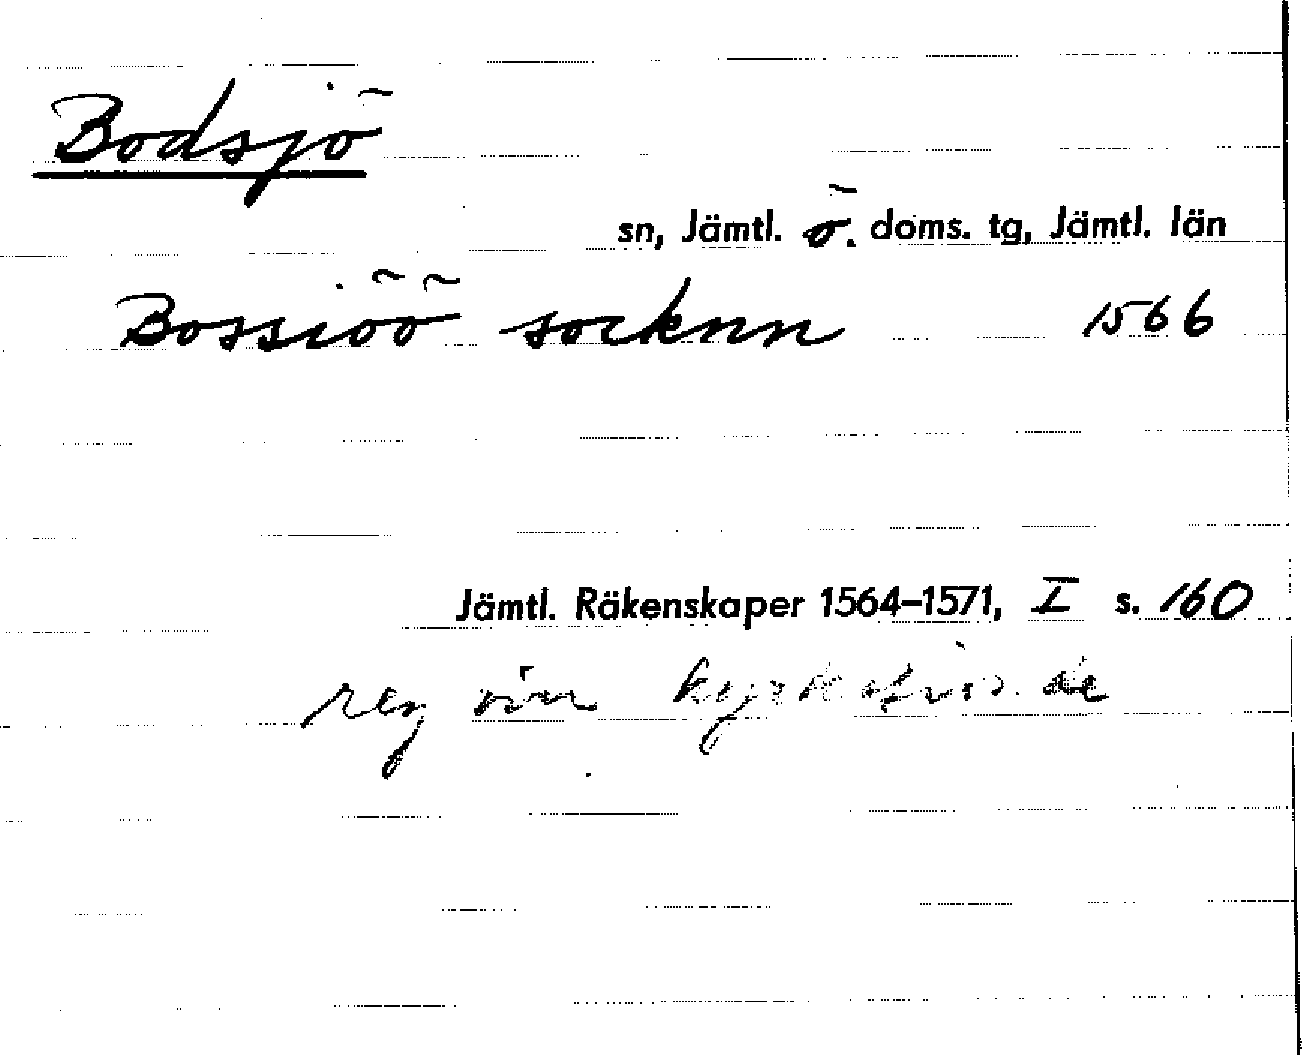 Bodsjö
sn, Jämtl. ö. doms. tg, Jämtl. län
Bossiöö socknn 1566
Jämtl. Räkenskaper 1564–1571, I s. 160
reg över kyrkotionde